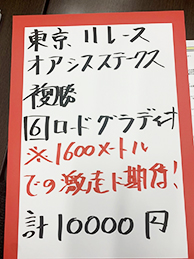 東京11レース
オアシスステークス
複勝
6 ロードグラディオ
※1600メートル
での激走に期待!
計10000円